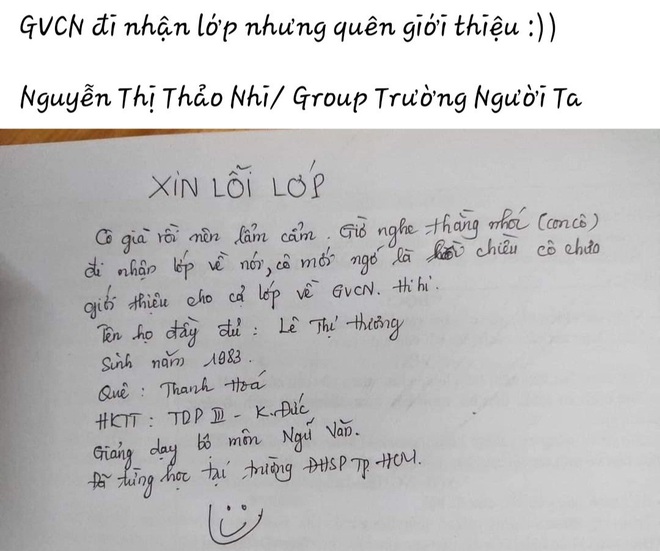 GVCN đi nhận lớp nhưng quên giới thiệu :))
Nguyễn Thị Thảo Nhi/ Group Trường Người Ta
XIN LỖI LỚP
Cô già rồi nên lẩm cẩm. Giờ nghe thằng nhỏ (con cô)
đi nhận lớp về nói, cô mới ngớ là chiều cô chưa
giới thiệu cho cả lớp về GVCN. Hi hi.
Tên họ đầy đủ: Lê Thị Thương
Sinh năm 1983.
Quê: Thanh Hoá
HKTT: TDP III - K. Đức
Giảng dạy bộ môn Ngữ Văn.
Đã từng học tại trường ĐHSP TP. HCM.